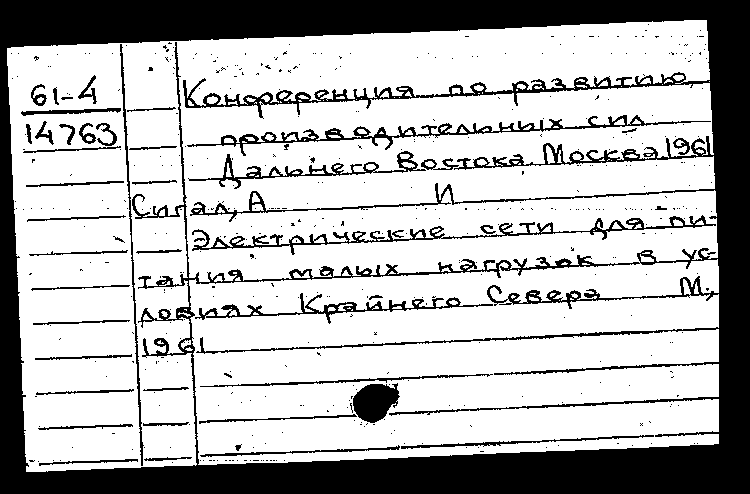 61-4
14763
Конференция по развитию
производительных сил
Дальнего Востока. Москва, 1961
Сигал, А И
Электрические сети для пи-
тания малых нагрузок в ус-
ловиях Крайнего Севера М.,
1961